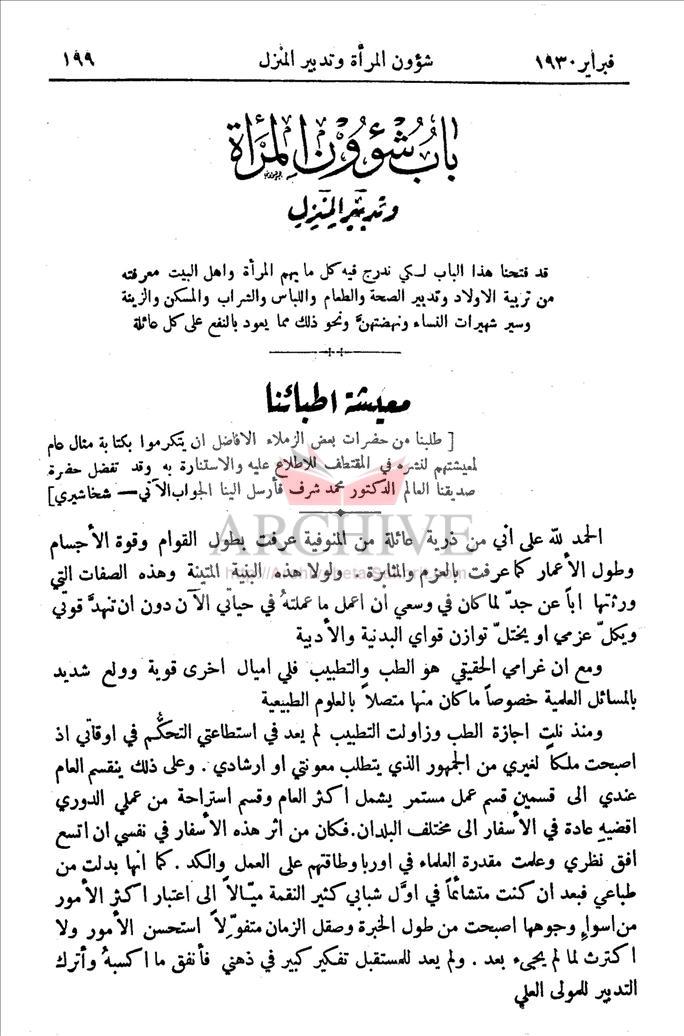 فبراير ١٩٣٠ شؤون المرأة وتدبير المنزل ١٩٩
باب شؤون المرأة
وتدبير المنزل
قد فتحنا هذا الباب لـكي ندرج فيه كل ما يهم المرأة واهل البيت معرفته
من تربية الاولاد وتدبير الصحة والطعام واللباس والشراب والمسكن والزينة
وسير شهيرات النساء ونهضتهنَّ ونحو ذلك مما يعود بالنفع على كل عائلة
معيشة اطبائنا
[ طلبنا من حضرات بعض الزملاء الافاضل ان يتكرموا بكتابة مثال عام
لمعيشتهم لنشره في المقتطف للاطلاع عليه والاستنارة به وقد تفضل حضرة
صديقنا العالم الدكتور محمد شرف فأرسل الينا الجواب الآتي — شخاشيري ]
ARCHIVE
الحمد لله على اني من ذرية عائلة من المنوفية عرفت بطول القوام وقوة الأجسام
وطول الأعمار كما عرفت بالعزم والمثابرة . ولولا هذه البنية المتينة وهذه الصفات التي
ورثتها اباً عن جدّ لما كان في وسعي ان اعمل ما عملتهُ في حياتي الآن دون ان تنهدَّ قوتي
ويكلّ عزمي او يختلّ توازن قواي البدنية والأدبية
ومع ان غرامي الحقيقي هو الطب والتطبيب فلي اميال اخرى قوية وولع شديد
بالمسائل العلمية خصوصاً ما كان منها متصلاً بالعلوم الطبيعية
ومنذ نلت اجازة الطب وزاولت التطبيب لم يعد في استطاعتي التحكُّم في اوقاتي اذ
اصبحت ملكاً لغيري من الجمهور الذي يتطلب معونتي او ارشادي . وعلى ذلك ينقسم العام
عندي الى قسمين قسم عمل مستمر يشمل اكثر العام وقسم استراحة من عملي الدوري
اقضيهِ عادة في الأسفار الى مختلف البلدان . فكان من اثر هذه الأسفار في نفسي ان اتسع
افق نظري وعلمت مقدرة العلماء في اوربا وطاقتهم على العمل والكد . كما انها بدلت من
طباعي فبعد ان كنت متشائماً في اوَّل شبابي كثير النقمة ميّالاً الى اعتبار اكثر الأمور
من اسواءِ وجوهها اصبحت من طول الخبرة وصقل الزمان متفوّلاً استحسن الأمور ولا
اكترث لما لم يجىء بعد . ولم يعد للمستقبل تفكير كبير في ذهني فأنفق ما اكسبهُ وأترك
التدبير للمولى العلي